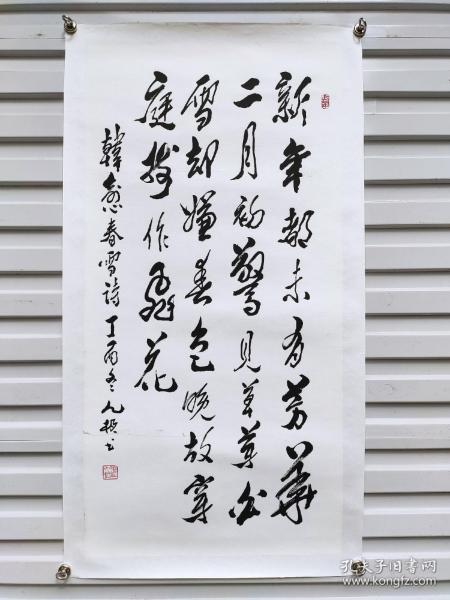 新年都未有芳華
二月初驚見草芽白
雪却嫌春色晚故穿
庭樹作飛花
韓愈春雪詩丁酉冬
孔夫子旧书网
www.kongfz.com